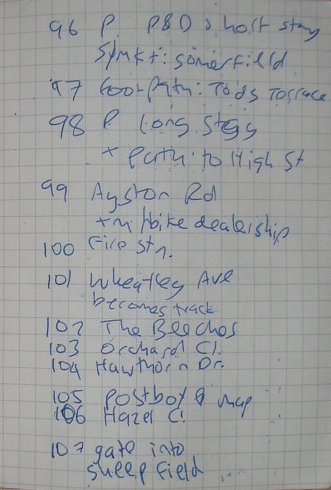 96 P P&D short stay
Spmkt: Somerfield
97 footpath: Tods Terrace
98 P Long Stay
+ path to High St
99 Ayston Rd
+ m/bike dealership
100 Fire Stn.
101 Wheatley Ave
becomes track
102 The Beeches
103 Orchard Cl.
104 Hawthorn Dr.
105 postbox & map
106 Hazel Cl.
107 gate into
sheep field